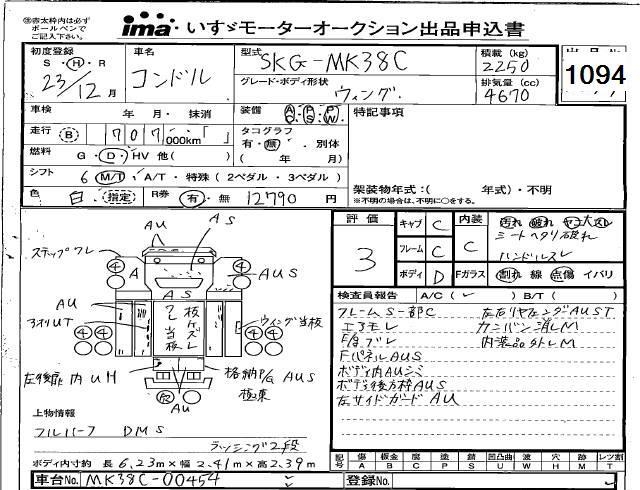 ㊟赤太枠内は必ず
ボールペンで
ご記入下さい。
ima いすゞモーターオークション出品申込書
初度登録 車名 型式 SKG-MK38C 積載 (kg) 2250
S・H・R 23/12月 コンドル グレード・ボディ形状 ウィング 排気量 (cc) 4670
1094
車検 年 月・抹消 装備 AC PS PW 特記事項
走行 B 707 000km タコグラフ 有・無・別体
燃料 G・D・HV 他( ) ( 年 月)
シフト 6 M/T・A/T・特殊(2ペダル・3ペダル) 架装物年式:( 年式)・不明
※不明の場合は、不明に○をする。
色 白 指定 R券 有・無 12790 円
評価 3
キャブ C 内装 C 汚れ 破れ ヤニ大スレ
シートヘタリ破れ
フレーム C ハンドルスレ
ボディ D Fガラス 割れ 線 点傷 イバリ
検査員報告 A/C( ) B/T( )
フレームS-部C
エアモレ カンバン消しM
内装品外しM
FパネルAUS
ボディ内AUシミ
ボディ後方枠AUS
左サイドガードAU
AU AS
ステップワレ
4 A 4 AUS
AS
AU
3オリUT
4 4 ウィング当板
4 4
左後扉内UH 格納P/G AUS
AU
上物情報
フルハーフ DMS
ラッシング2段
ボディ内寸約 長 6.23m×幅 2.41m×高 2.39m
記号 傷A 板金B 腐C 塗P 錆S 凹凸曲U 波W 穴H 跡M レンズ割T
車台No. MK38C-00454 登録No.